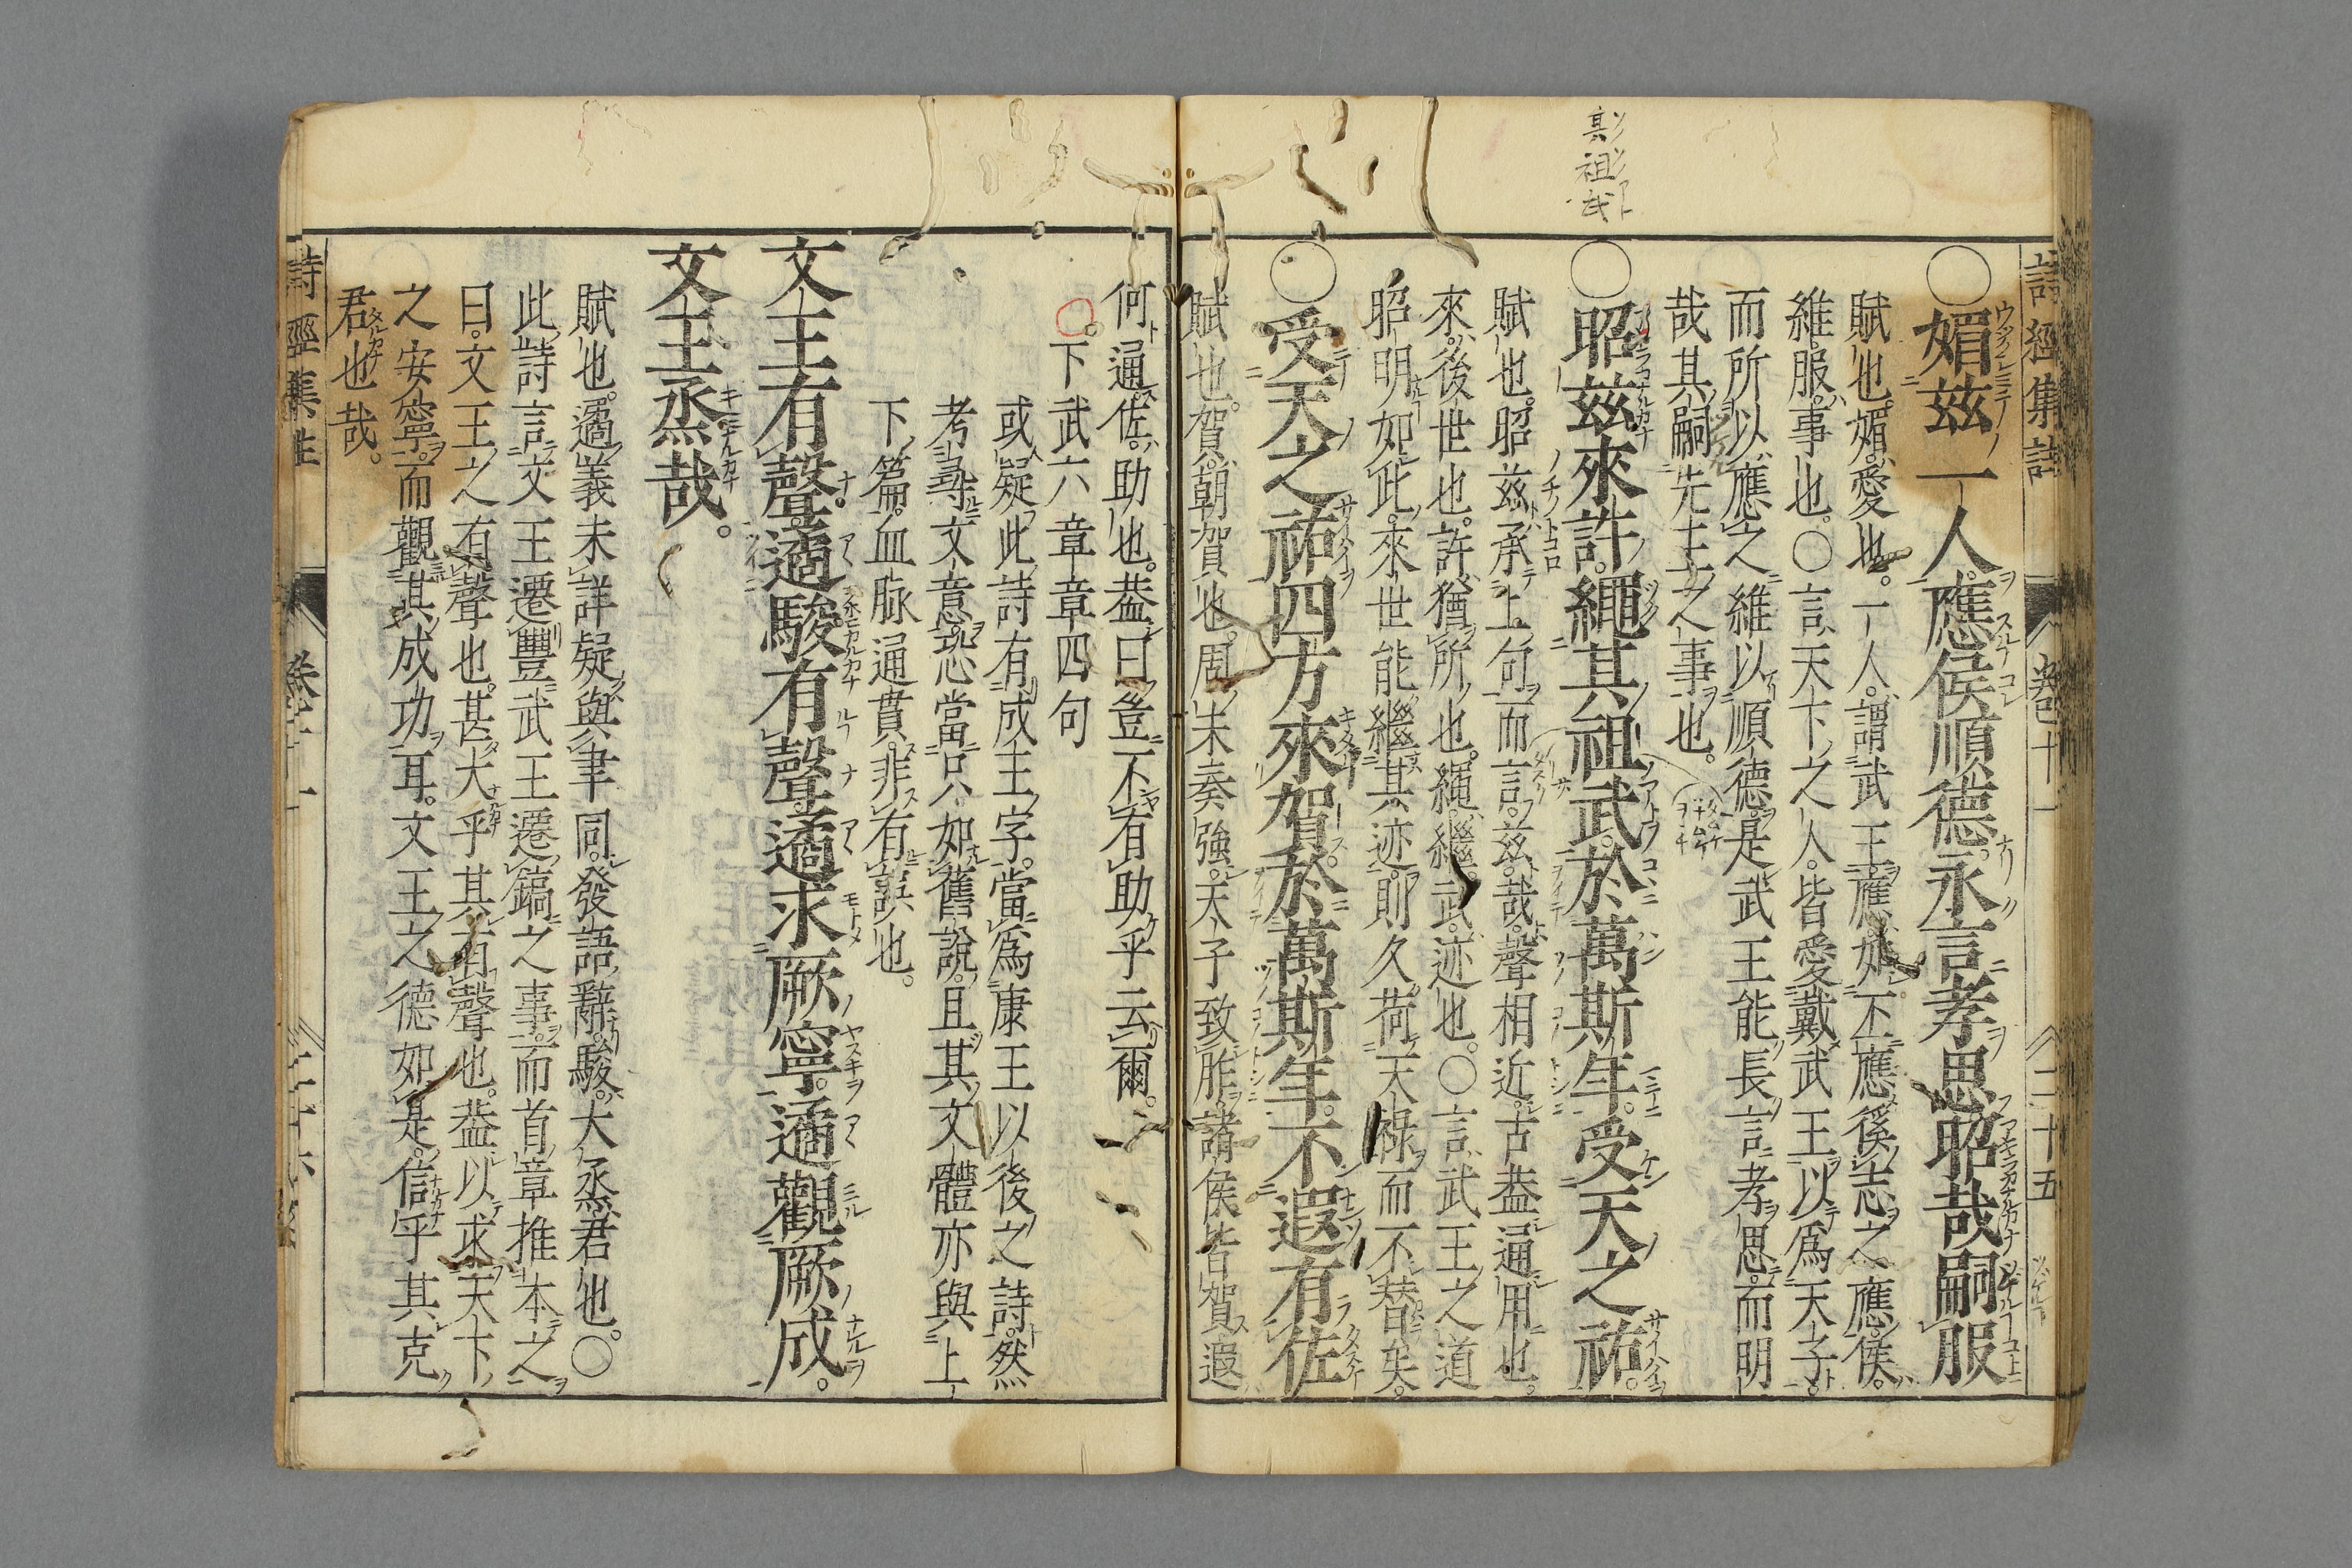 詩經集註
卷十一
二十五
其祖武
○媚茲一人。應侯順德。永言孝思。昭哉嗣服
賦也。媚。愛也。一人。謂武王。應。如丕應徯志之應。侯。
維。服。事也。○言天下之人。皆愛戴武王以爲天子。
而所以應之維以順德。是武王能長言孝思。而明
哉其嗣先王之事也。
○昭茲來許。繩其祖武。於萬斯年。受天之祐。
賦也。昭茲承上句而言。茲。哉。聲相近。古葢通用也。
來。後世也。許。猶所也。繩。繼。武。迹也。○言武王之道
昭明如此。來世能繼其迹。則久荷天祿而不替矣。
○受天之祐。四方來賀。於萬斯年。不遐有佐
賦也。賀。朝賀也。周末秦強。天子致胙。諸侯皆賀。遐
何通。佐。助也。葢曰豈不有助乎云爾。
○下武六章章四句
或疑此詩有成王字。當爲康王以後之詩。然
考尋文意。恐當只如舊說。且其文體亦與上
下篇血脉通貫。非有誤也。
文王有聲。遹駿有聲。遹求厥寧。遹觀厥成。
文王烝哉。
賦也。遹義未詳疑與聿同。發語辭。駿。大烝君也。○
此詩言文王遷豐武王遷鎬之事。而首章推本之
曰。文王之有聲也。甚大乎其有聲也。葢以求天下
之安寧。而觀其成功耳。文王之德如是。信乎其克
君也哉。
詩經集註
卷十一